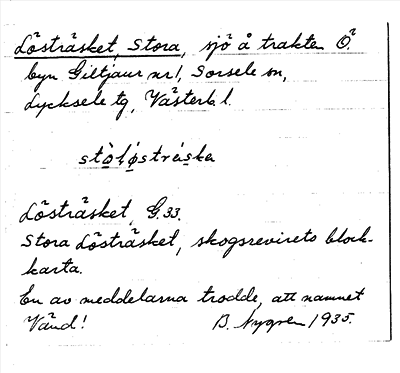 Lösträsket, Stora, sjö å trakten Ö.
byn Giltjaur nr 1, Sorsele sn,
Lycksele tg, Västerb. l.
stò̀lǫsträ́ska
Lösträsket, G. 33.
Stora Lösträsket, skogsrevirets block-
karta.
En av meddelarna trodde, att namnet
Vänd! B. Nygren 1935.